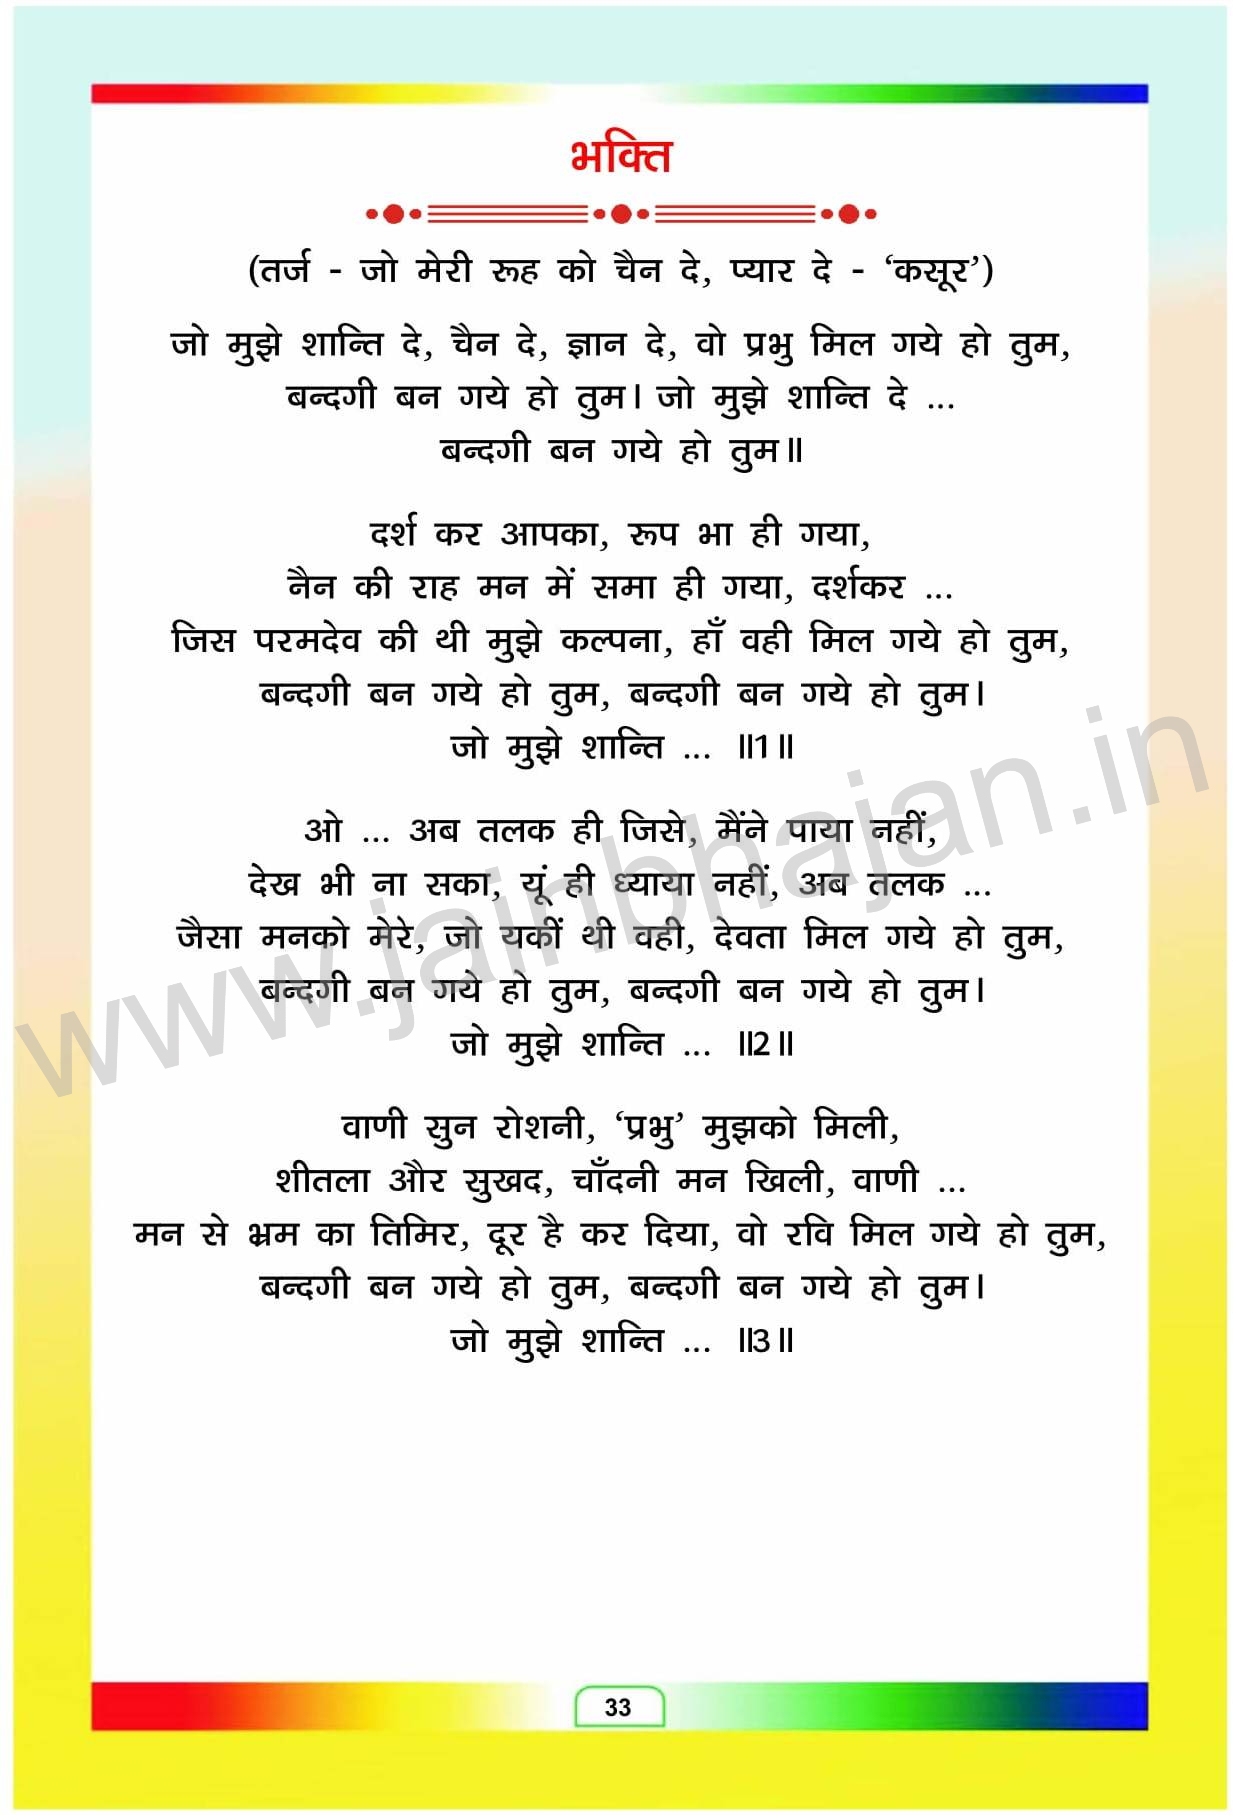 भक्ति
(तर्ज - जो मेरी रूह को चैन दे, प्यार दे - ‘कसूर’)
जो मुझे शान्ति दे, चैन दे, ज्ञान दे, वो प्रभु मिल गये हो तुम,
बन्दगी बन गये हो तुम। जो मुझे शान्ति दे ...
बन्दगी बन गये हो तुम॥
दर्श कर आपका, रूप भा ही गया,
नैन की राह मन में समा ही गया, दर्शकर ...
जिस परमदेव की थी मुझे कल्पना, हाँ वही मिल गये हो तुम,
बन्दगी बन गये हो तुम, बन्दगी बन गये हो तुम।
जो मुझे शान्ति ... ॥1॥
ओ ... अब तलक ही जिसे, मैंने पाया नहीं,
देख भी ना सका, यूं ही ध्याया नहीं, अब तलक ...
जैसा मनको मेरे, जो यकीं थी वही, देवता मिल गये हो तुम,
बन्दगी बन गये हो तुम, बन्दगी बन गये हो तुम।
जो मुझे शान्ति ... ॥2॥
वाणी सुन रोशनी, ‘प्रभु’ मुझको मिली,
शीतला और सुखद, चाँदनी मन खिली, वाणी ...
मन से भ्रम का तिमिर, दूर है कर दिया, वो रवि मिल गये हो तुम,
बन्दगी बन गये हो तुम, बन्दगी बन गये हो तुम।
जो मुझे शान्ति ... ॥3॥
33
www.jainbhajan.in